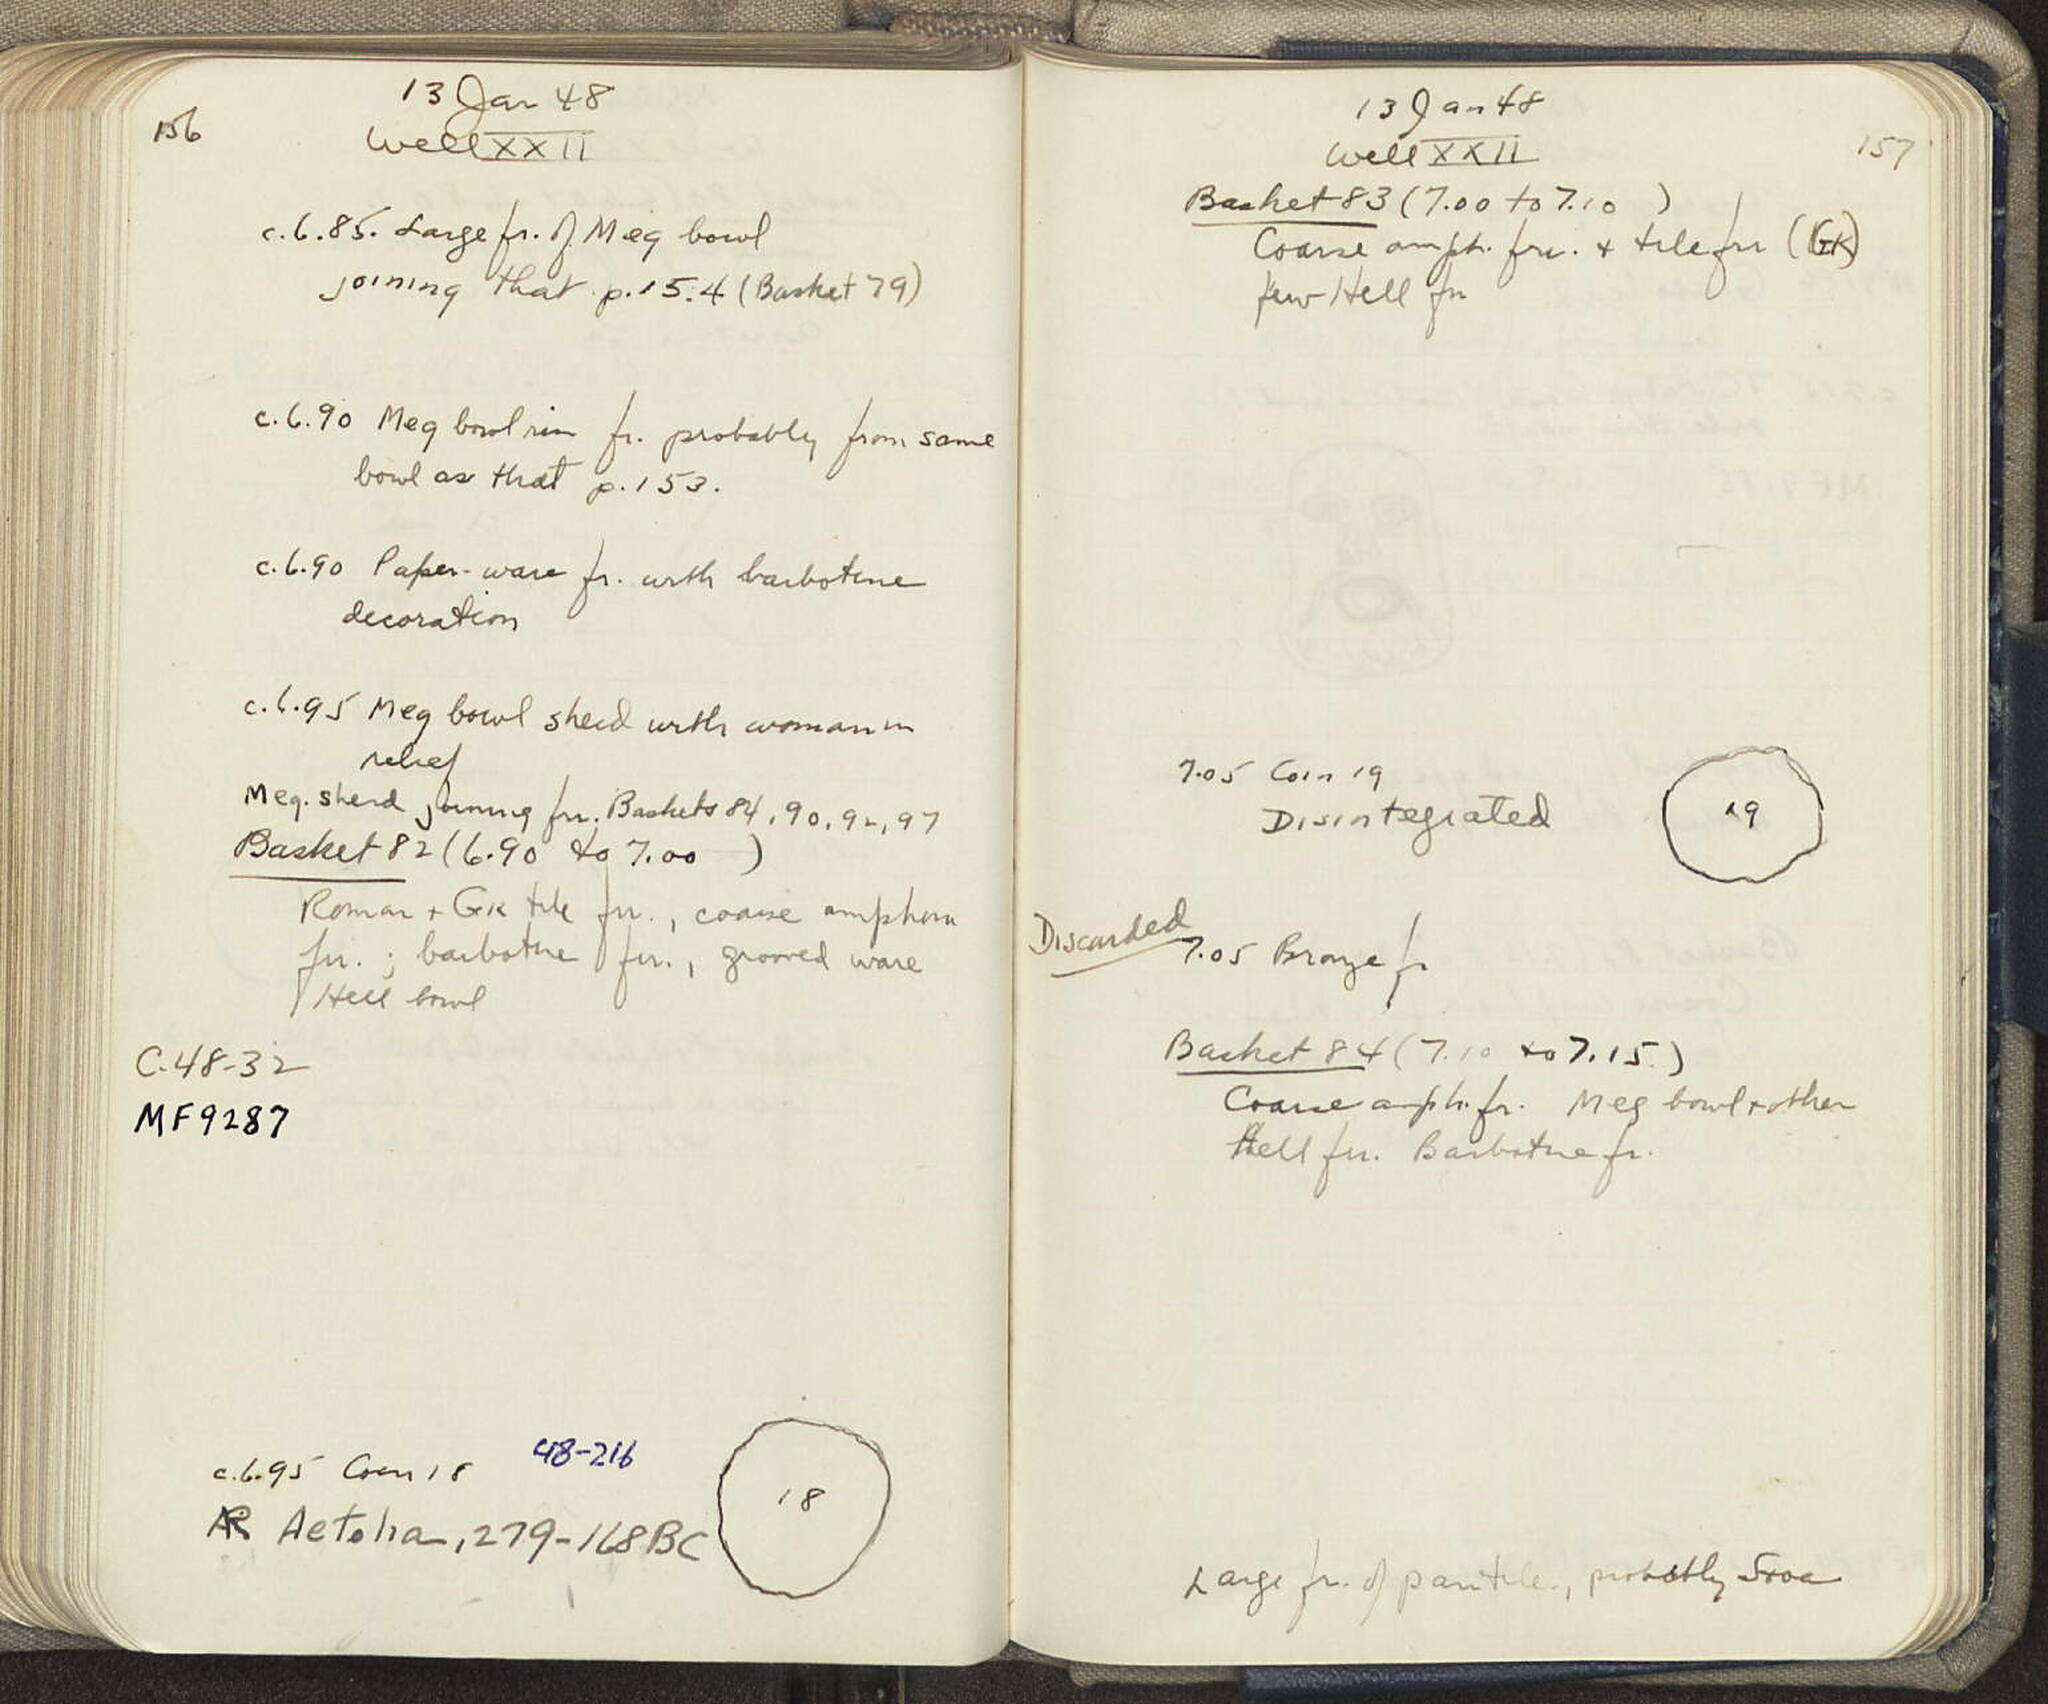 156
13 Jan 48
Well XXII
c.6.85. Large fr. of Meg bowl
joining that p.15.4 (Basket 79)
c.6.90 Meg bowl rim fr. probably from same
bowl as that p.153.
c.6.90 Paper-ware fr. with barbotine
decoration
c.6.95 Meg bowl sherd with woman in
relief
Meg. sherd joining frr. Baskets 84, 90, 92, 97
Basket 82 (6.90 to 7.00 )
Roman + Gk tile frr., coarse amphora
frr. ; barbotine frr., grooved ware
Hell bowl
C.48-32
MF9287
c.6.95 Coin 18 48-216
18
AR Aetolia, 279-168 BC
157
13 Jan 48
Well XXII
Basket 83 (7.00 to 7.10 )
Coarse amph. frr. + tile frr (GK)
few Hell fr
7.05 Coin 19
Disintegrated
19
Discarded
7.05 Bronze fr
Basket 84 (7.10 to 7.15.)
Coarse amph. fr. Meg bowl + other
Hell frr. Barbotine fr.
Large fr. of pantile, probably Stoa